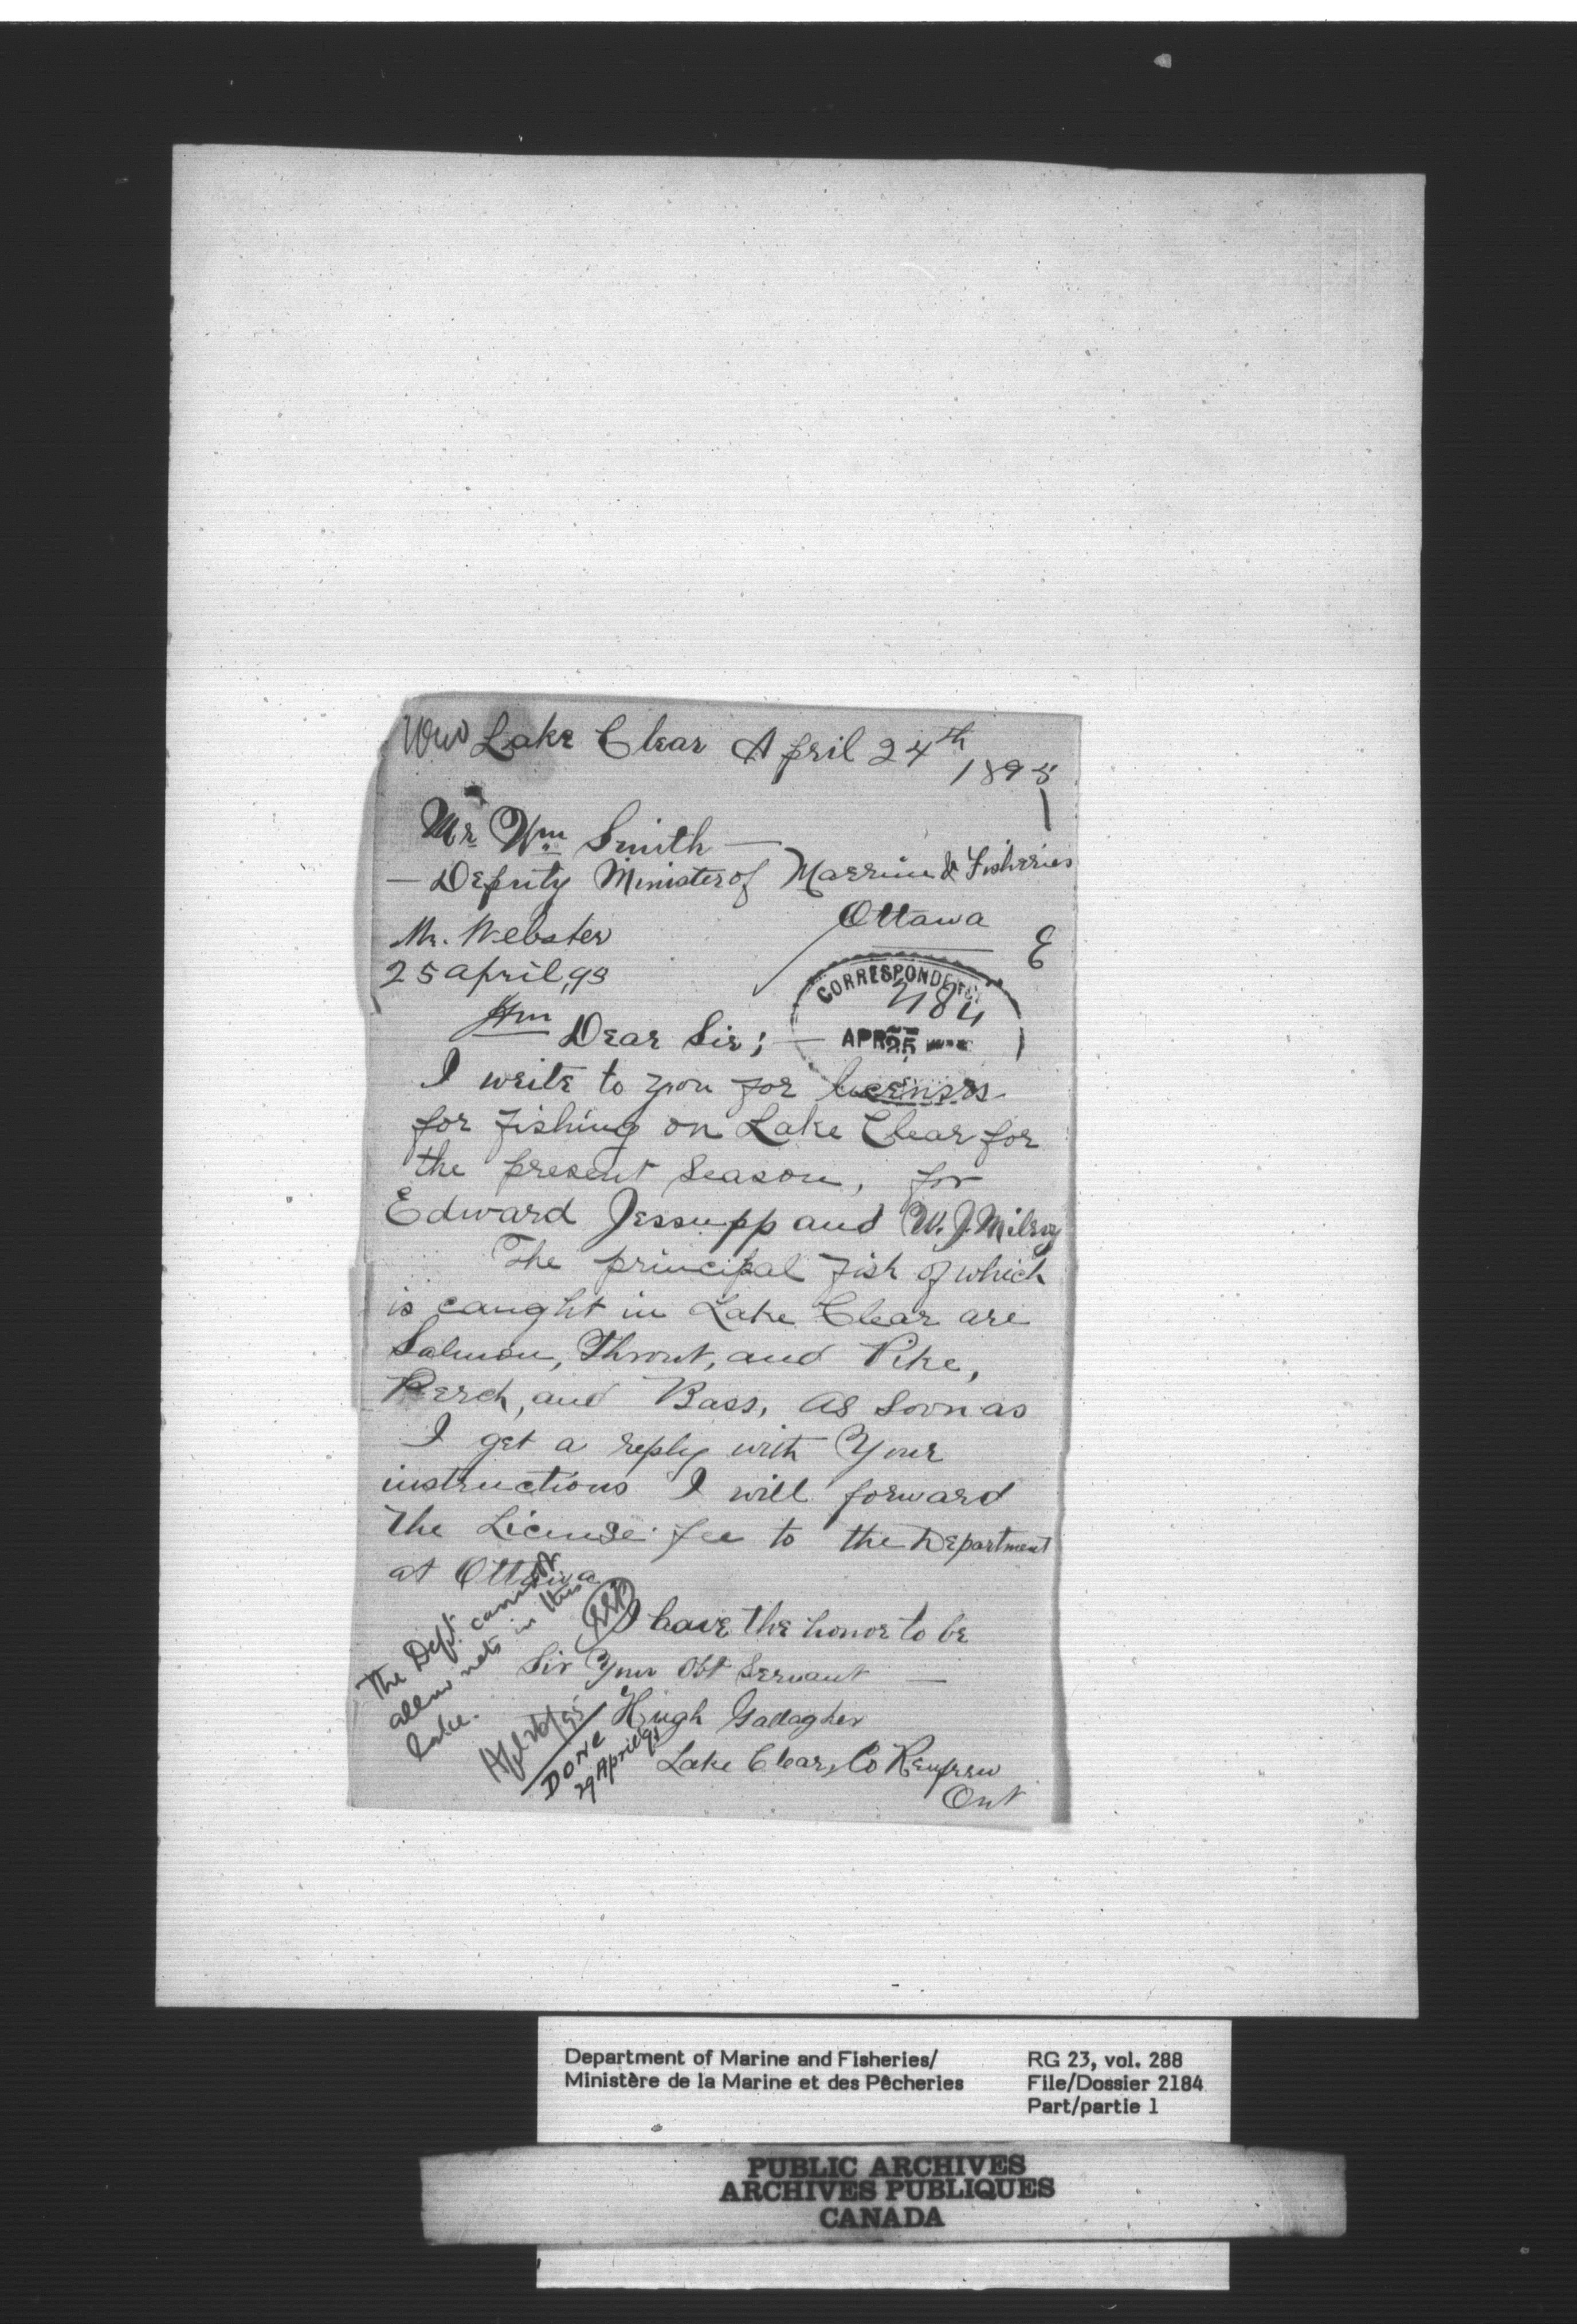 Lake Clear April 24th
189
Mr Wm Smith —
— Deputy Minister of Marrine & Fisheries
Ottawa
E
Mr. Webster
25 April, 93
CORRESPONDENCE
2184
APR 25
Dear Sir; —
I write to you for licenses
for fishing on Lake Clear for
the present season, for
Edward Jessupp and W. J. Milroy
The principal fish of which
is caught in Lake Clear are
Salmon, Throut, and Pike,
Perch, and Bass, as soon as
I get a reply with Your
instructions I will forward
the License fee to the Department
at Ottawa
I have the honor to be
Sir Your Obt Servant —
Hugh Gallagher
Lake Clear, Co Renfrew
Ont
The Dept. cannot
allow nets in this
lake.
Done
29 April
Department of Marine and Fisheries/
Ministère de la Marine et des Pêcheries
RG 23, vol. 288
File/Dossier 2184
Part/partie 1
PUBLIC ARCHIVES
ARCHIVES PUBLIQUES
CANADA